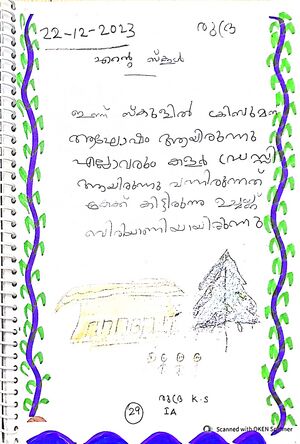 22-12-2023
രുദ്ര
എന്റെ സ്കൂൾ
ഇന്ന് സ്കൂളിൽ ക്രിസ്മസ്
ആഘോഷം ആയിരുന്നു
എല്ലാവരും കളർ ഡ്രസ്സ്
ആയിരുന്നു വന്നിരുന്നത്
കിട്ടിരുന്നു
ബിരിയാണിയായിരുന്നു
രുദ്ര K.S
29
IA
Scanned with OKEN Scanner